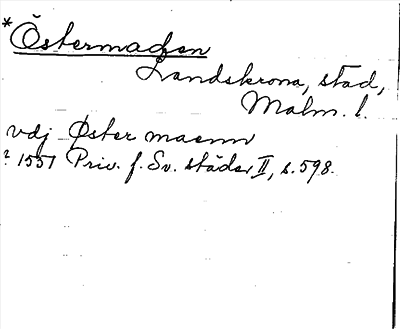 *Östermaden
Landskrona, stad,
Malm. l.
vdj Øster maenn
? 1557 Priv. f. Sv. städer II, s. 598.